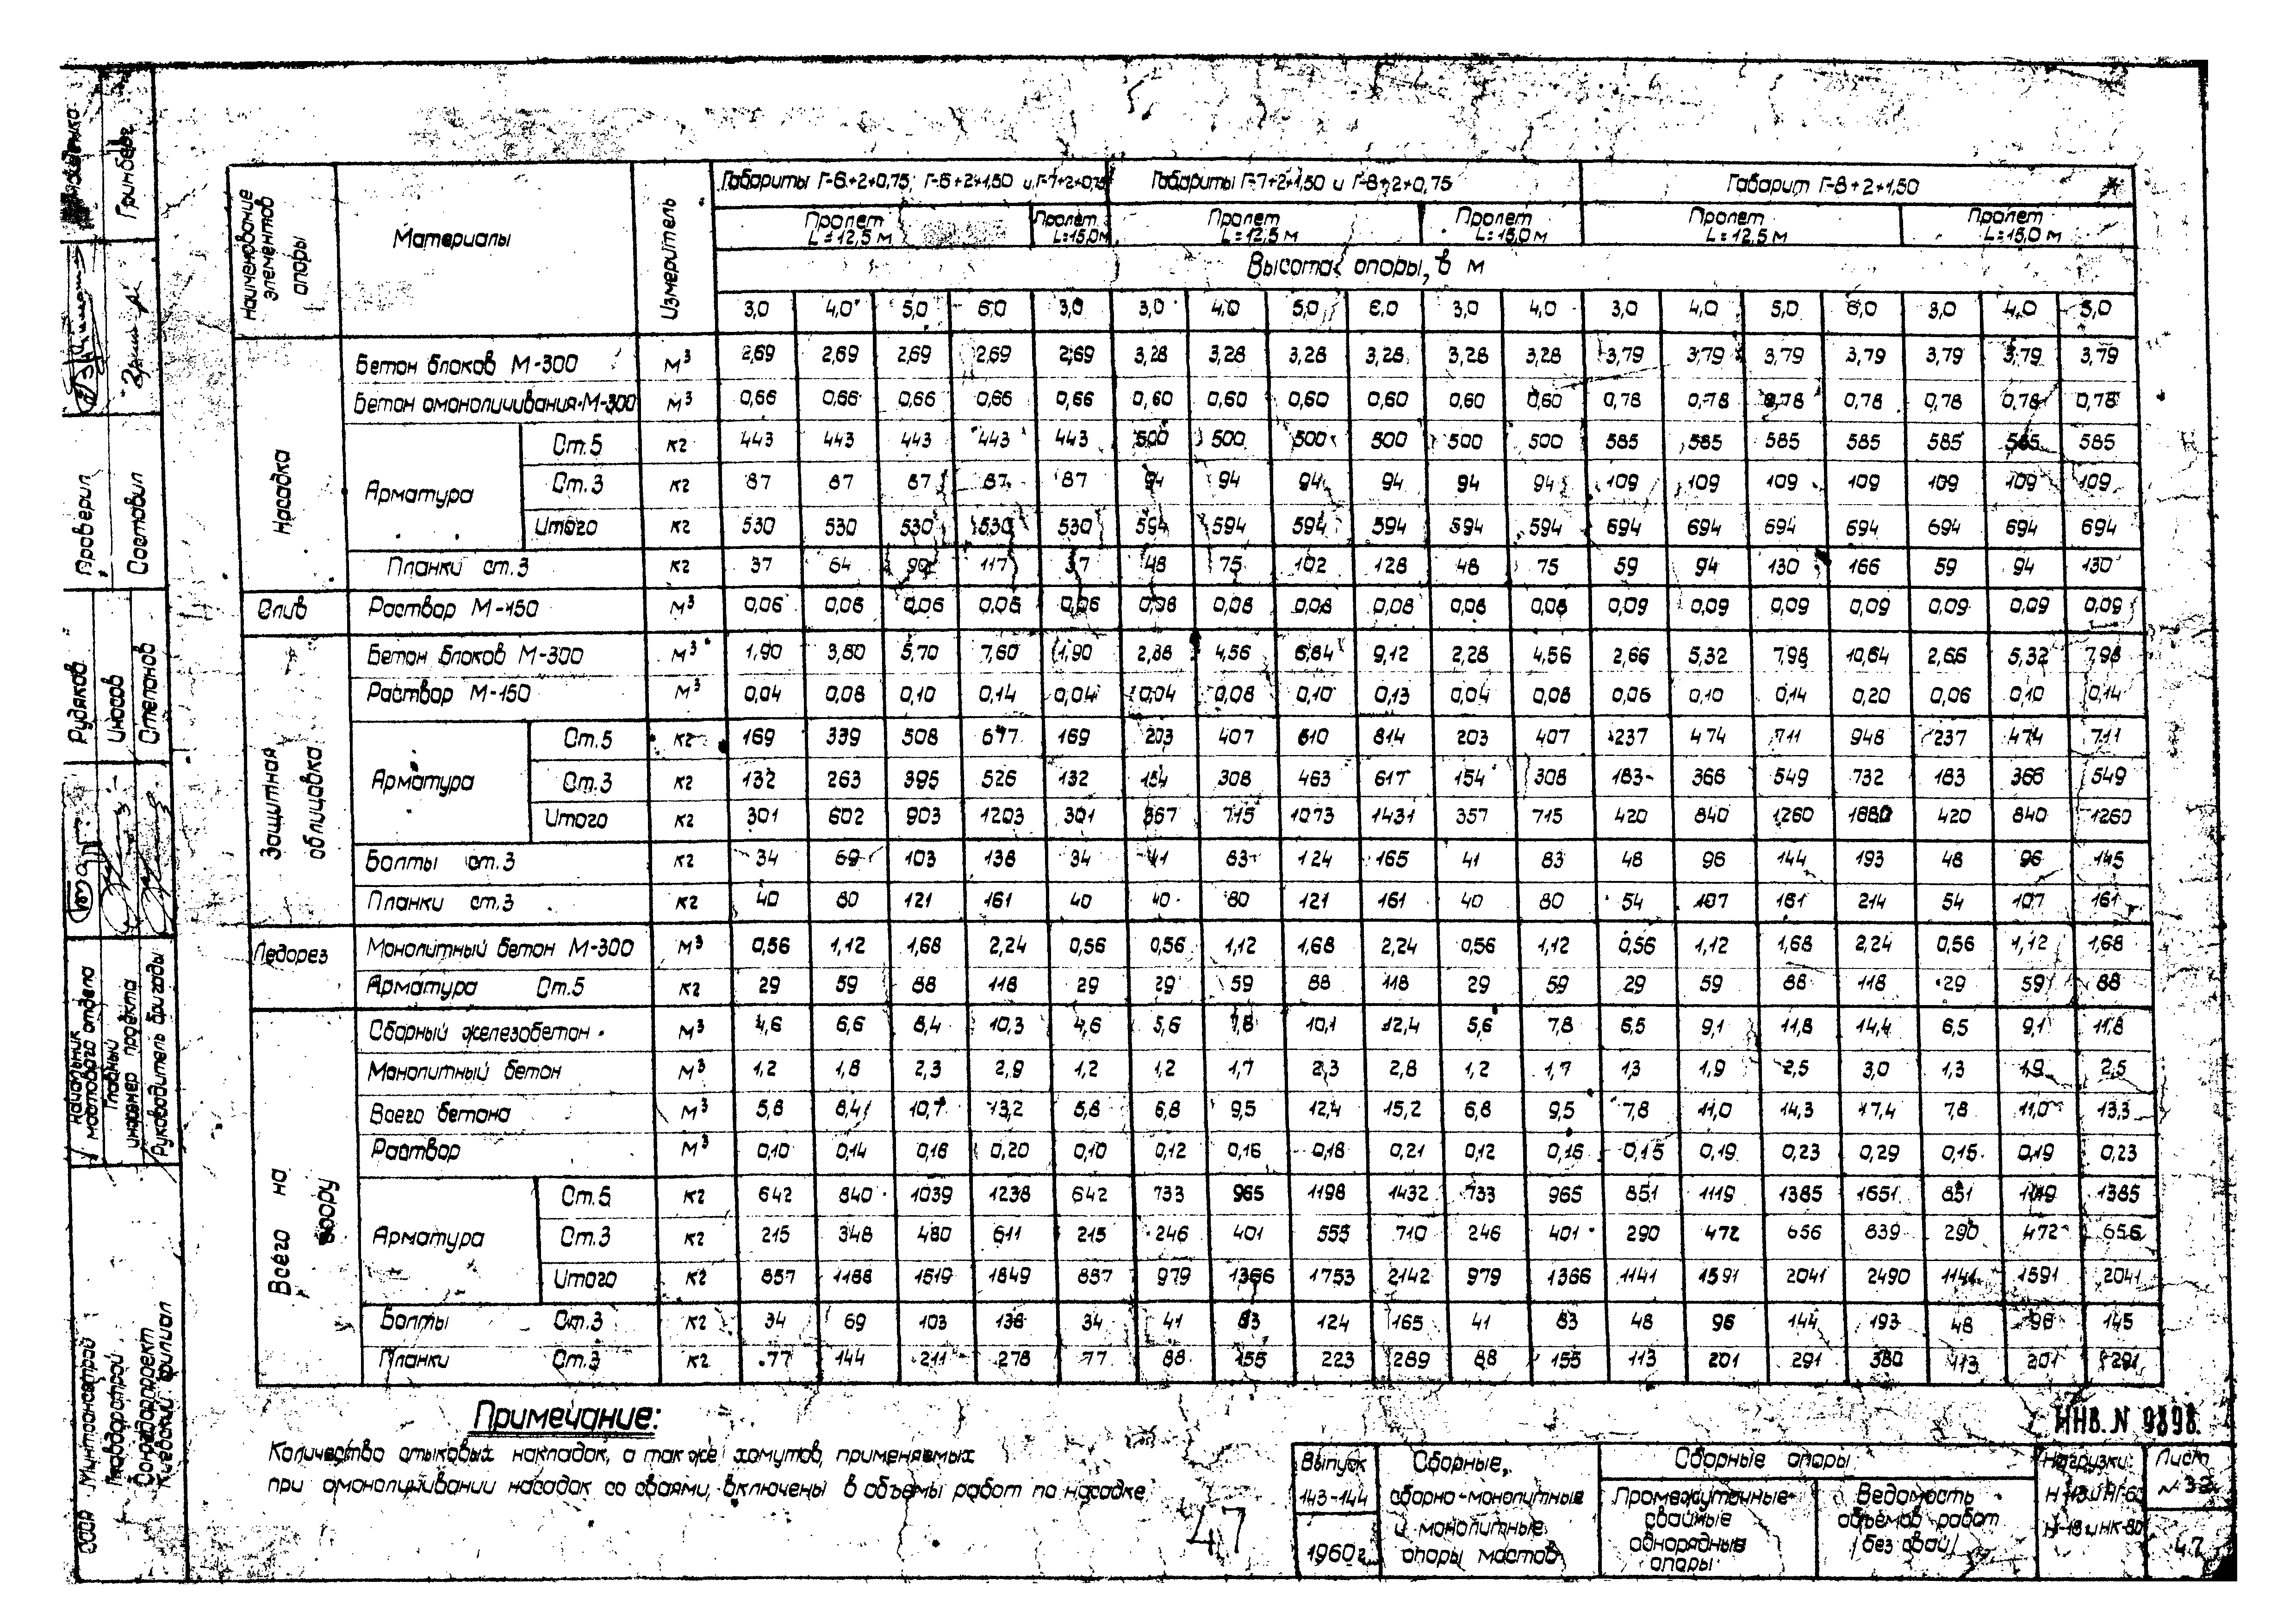 Наименование элементов опоры
Материалы
Измеритель
Габариты Г-6+2+0,75; Г-6+2+1,50 и Г-7+2+0,75
Габариты Г-7+2+1,50 и Г-8+2+0,75
Габарит Г-8+2+1,50
Пролет L=12,5 м
Пролет L=15,0 м
Пролет L=12,5 м
Пролет L=15,0 м
Пролет L=12,5 м
Пролет L=15,0 м
Высота опоры, в м
3,0 4,0 5,0 6,0 3,0 3,0 4,0 5,0 6,0 3,0 4,0 3,0 4,0 5,0 6,0 3,0 4,0 5,0
Насадка
Бетон блоков М-300 м³ 2,69 2,69 2,69 2,69 2,69 3,28 3,28 3,28 3,28 3,28 3,28 3,79 3,79 3,79 3,79 3,79 3,79 3,79
Бетон омоноличивания М-300 м³ 0,66 0,66 0,66 0,66 0,66 0,60 0,60 0,60 0,60 0,60 0,60 0,78 0,78 0,78 0,78 0,78 0,78 0,78
Арматура
Ст.5 кг 443 443 443 443 443 500 500 500 500 500 500 585 585 585 585 585 585 585
Ст.3 кг 87 87 87 87 87 94 94 94 94 94 94 109 109 109 109 109 109 109
Итого кг 530 530 530 530 530 594 594 594 594 594 594 694 694 694 694 694 694 694
Планки ст.3 кг 37 64 90 117 37 48 75 102 128 48 75 59 94 130 166 59 94 130
Слив Раствор М-150 м³ 0,06 0,06 0,06 0,06 0,06 0,08 0,08 0,08 0,08 0,08 0,08 0,09 0,09 0,09 0,09 0,09 0,09 0,09
Защитная облицовка
Бетон блоков М-300 м³ 1,90 3,80 5,70 7,60 1,90 2,28 4,56 6,84 9,12 2,28 4,56 2,66 5,32 7,98 10,64 2,66 5,32 7,98
Раствор М-150 м³ 0,04 0,08 0,10 0,14 0,04 0,04 0,08 0,10 0,13 0,04 0,08 0,06 0,10 0,14 0,20 0,06 0,10 0,14
Арматура
Ст.5 кг 169 339 508 677 169 203 407 610 814 203 407 237 474 711 948 237 474 711
Ст.3 кг 132 263 395 526 132 154 308 463 617 154 308 183 366 549 732 183 366 549
Итого кг 301 602 903 1203 301 357 715 1073 1431 357 715 420 840 1260 1680 420 840 1260
Болты ст.3 кг 34 69 103 138 34 41 83 124 165 41 83 48 96 144 193 48 96 145
Планки ст.3 кг 40 80 121 161 40 40 80 121 161 40 80 54 107 161 214 54 107 161
Ледорез
Монолитный бетон М-300 м³ 0,56 1,12 1,68 2,24 0,56 0,56 1,12 1,68 2,24 0,56 1,12 0,56 1,12 1,68 2,24 0,56 1,12 1,68
Арматура Ст.5 кг 29 59 88 118 29 29 59 88 118 29 59 29 59 88 118 29 59 88
Всего на опору
Сборный железобетон м³ 4,6 6,6 8,4 10,3 4,6 5,6 7,8 10,1 12,4 5,6 7,8 6,5 9,1 11,8 14,4 6,5 9,1 11,8
Монолитный бетон м³ 1,2 1,8 2,3 2,9 1,2 1,2 1,7 2,3 2,8 1,2 1,7 1,3 1,9 2,5 3,0 1,3 1,9 2,5
Всего бетона м³ 5,8 8,4 10,7 13,2 5,8 6,8 9,5 12,4 15,2 6,8 9,5 7,8 11,0 14,3 17,4 7,8 11,0 13,3
Раствор м³ 0,10 0,14 0,16 0,20 0,10 0,12 0,16 0,18 0,21 0,12 0,16 0,15 0,19 0,23 0,29 0,15 0,19 0,23
Арматура
Ст.5 кг 642 840 1039 1238 642 733 965 1198 1432 733 965 851 1119 1385 1651 851 1119 1385
Ст.3 кг 215 348 480 611 215 246 401 555 710 246 401 290 472 656 839 290 472 656
Итого кг 857 1188 1519 1849 857 979 1366 1753 2142 979 1366 1141 1591 2041 2490 1141 1591 2041
Болты Ст.3 кг 34 69 103 138 34 41 83 124 165 41 83 48 96 144 193 48 96 145
Планки Ст.3 кг 77 144 211 278 77 88 155 223 289 88 155 113 201 291 380 113 201 291
Примечание:
Количество стыковых накладок, а также хомутов, применяемых
при омоноличивании насадок со сваями, включены в объемы работ по насадке
47
ИНВ. N 9898.
Выпуск
143-144
1960г.
Сборные,
сборно-монолитные
и монолитные
опоры мостов
Сборные опоры
Промежуточные
свайные
однорядные
опоры
Ведомость
объемов работ
/без свай/
Нагрузки:
Н-13 и НГ-60
Н-18 и НК-80
Лист
47
Гринберг
Проверил
Составил
Рудяков
Иносов
Степанов
Начальник
мостового отдела
Главный
инженер проекта
Руководитель бригады
СССР Минтрансстрой
Главдорстрой
Союздорпроект
Киевский филиал